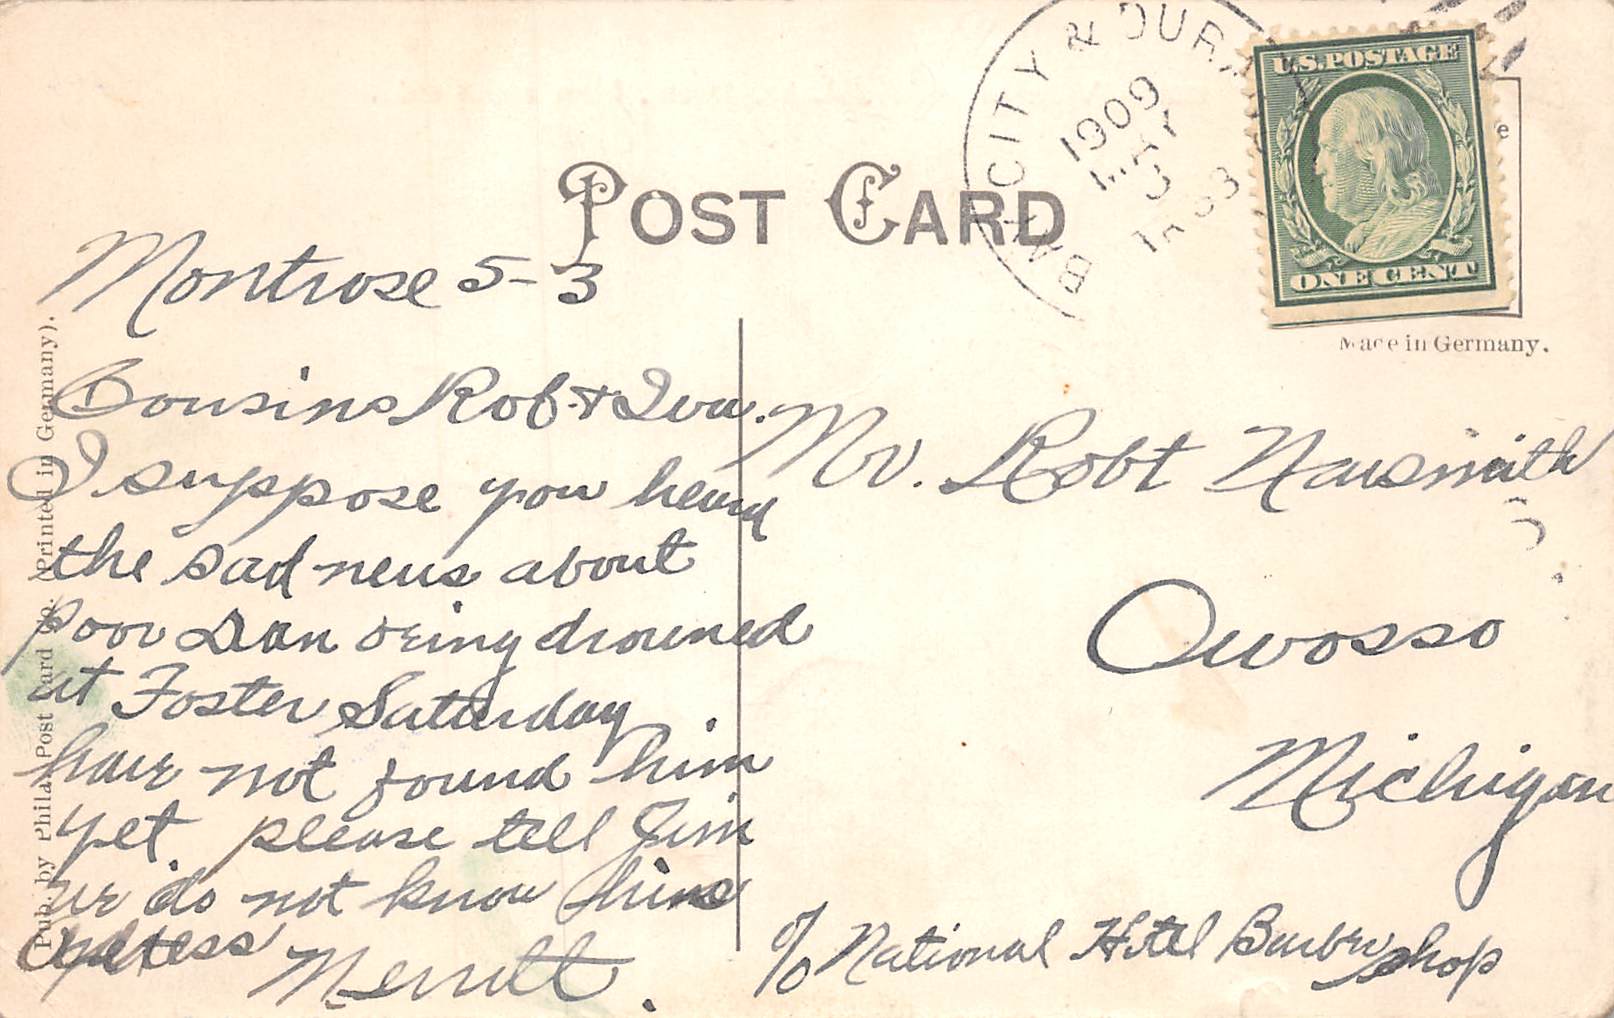 BAY CITY & DURAND
1909
MAY
3
U.S. POSTAGE
ONE CENT
POST CARD
Made in Germany.
Pub. by Phila. Post Card Co. (Printed in Germany).
Montrose 5-3
Cousins Rob & Iva.
I suppose you heard
the sad news about
poor Dan being drowned
at Foster Saturday
have not found him
yet. please tell Jim
we do not know his
address Merritt.
Mr. Robt Naismith
Owosso
Michigan
c/o National Hotel Barber shop